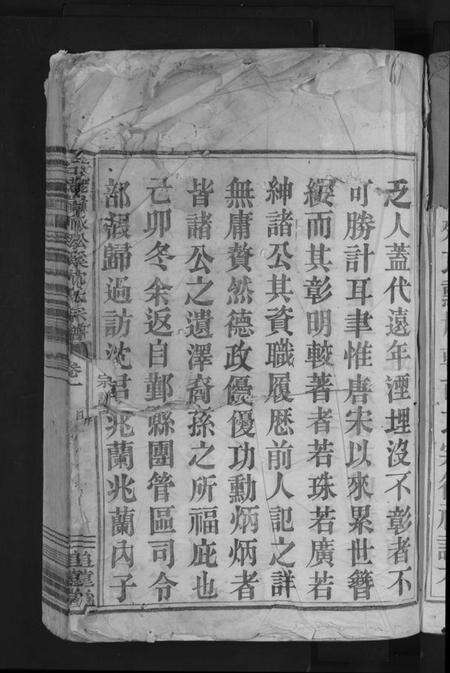 乏人蓋代遠年湮埋沒不彰者不
可勝計耳聿惟唐宋以來累世簪
綬而其彰明較著者若珠若廣若
紳諸公其資職履歷前人記之詳
無庸贅然德政優優功勳炳炳者
皆諸公之遺澤裔孫之所福庇也
己卯冬余返自鄞縣團管區司令
部報歸過訪沈君兆蘭兆蘭內子
卷一
宗